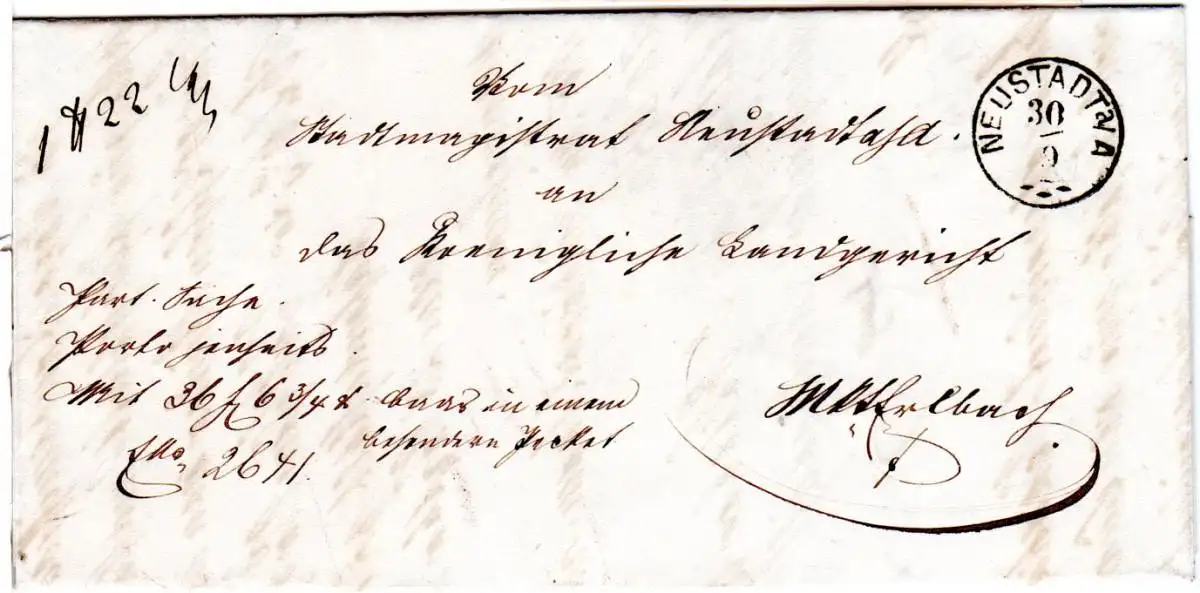 1 ℔ 22
Vom
Stadtmagistrat Neustadt a/d A.
NEUSTADT a/A
30
9
an
das Koenigliche Landgericht
Part. Sache.
Porto jenseits.
Mit 36 f 6 3/4 x baar in einem
besondern Packet
No. 2641.
Mkt Erlbach.